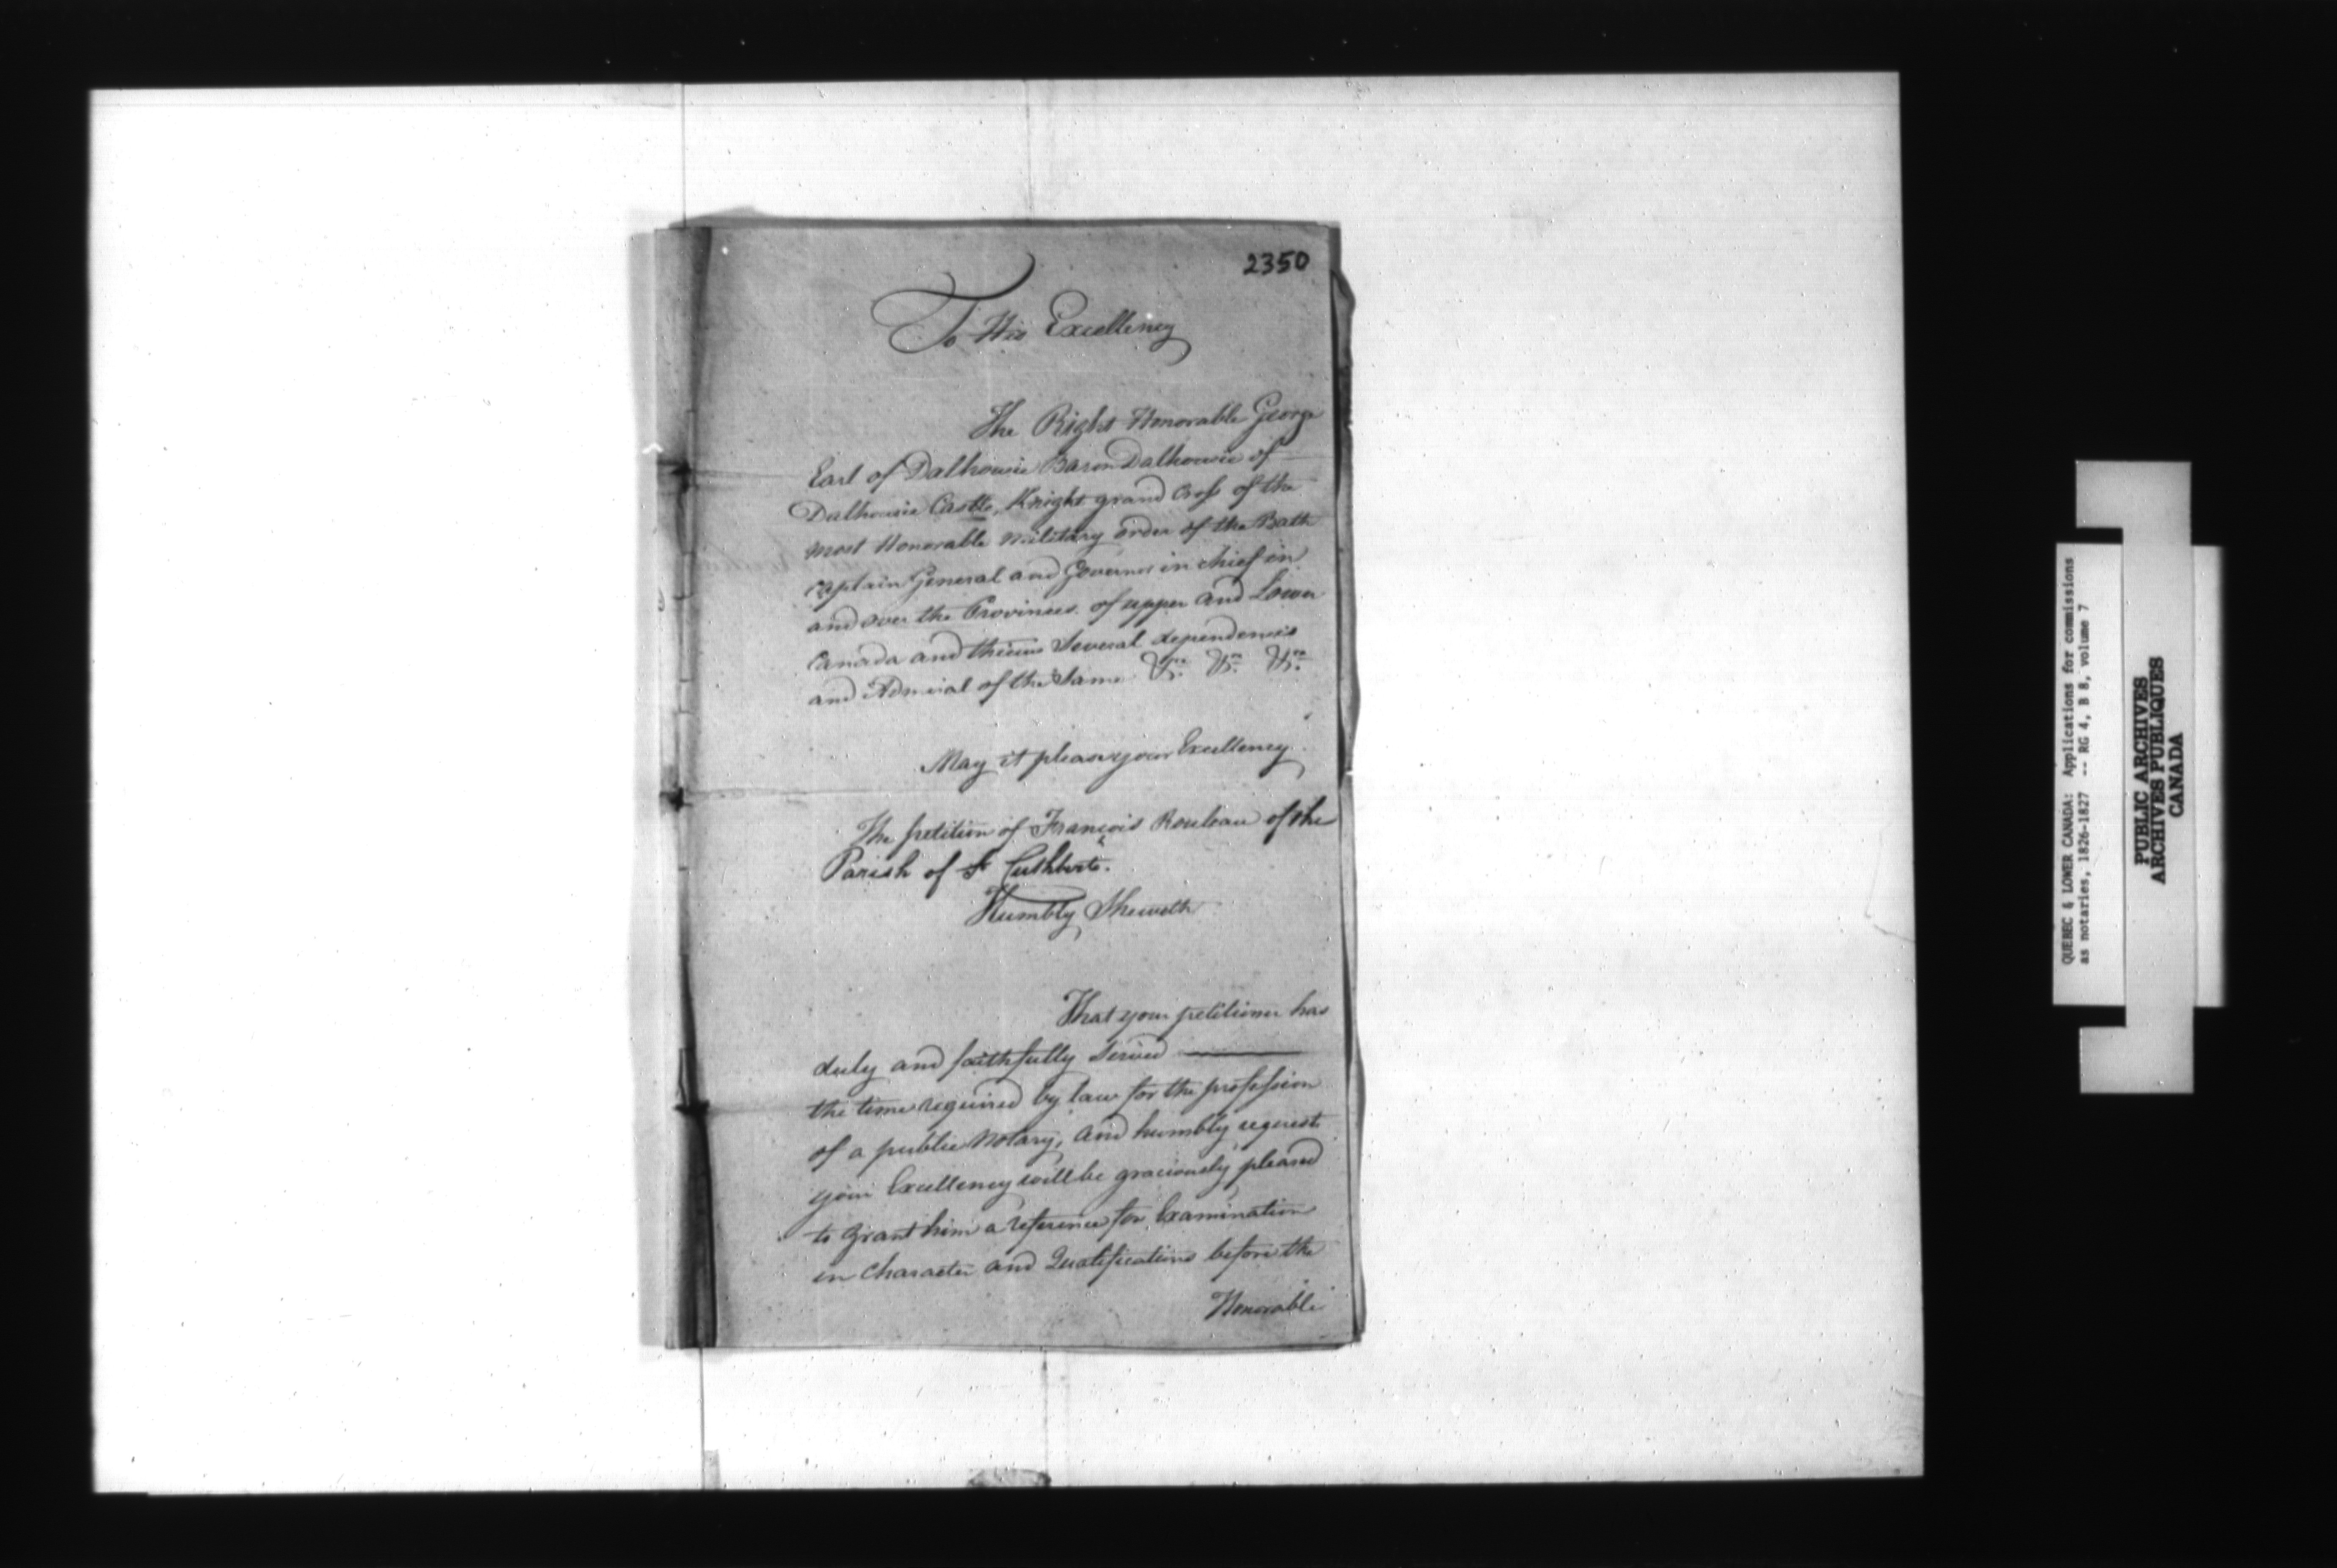 2350
To His Excellency
The Right Honorable George
Earl of Dalhousie Baron Dalhousie of
Dalhousie Castle, Knight grand Cross of the
most Honorable military order of the Bath
Captain General and Governor in chief in
and over the Provinces of upper and Lower
Canada and Several dependencies
and Admiral of the Same &ca. &ca. &ca.
May it please your Excellency
The petition of François Rouleau of the
Parish of St Cuthberts.
Humbly Sheweth
That your petitioner has
duly and faithfully Served
the time required by law for the profession
of a public Notary, and humbly request
your Excellency will be graciously pleased
to grant him a reference for Examination
in Character and Qualifications before the
Honorable
QUEBEC & LOWER CANADA: Applications for commissions
as notaries, 1826-1827 -- RG 4, B 8, volume 7
PUBLIC ARCHIVES
ARCHIVES PUBLIQUES
CANADA